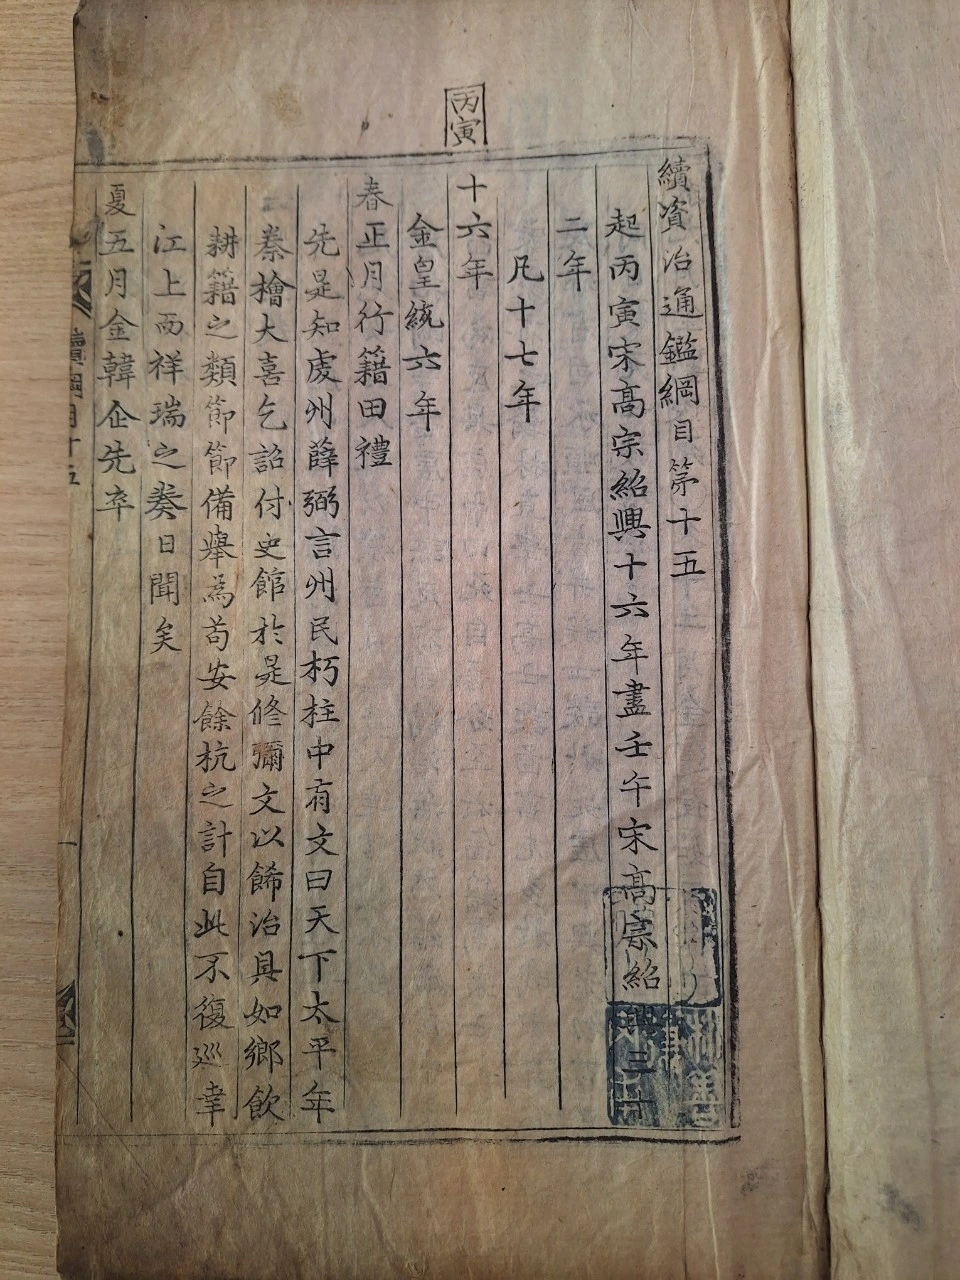 丙寅
續資治通鑑綱目第十五
起丙寅宋高宗紹興十六年盡壬午宋高宗紹興三十
二年
凡十七年
十六年
金皇統六年
春正月行籍田禮
先是知虔州薛弼言州民朽柱中有文曰天下太平年
秦檜大喜乞詔付史館於是修彌文以餙治具如鄉飲
耕籍之類節節備舉為苟安餘杭之計自此不復巡幸
江上而祥瑞之奏日聞矣
夏五月金韓企先卒
續綱目十五